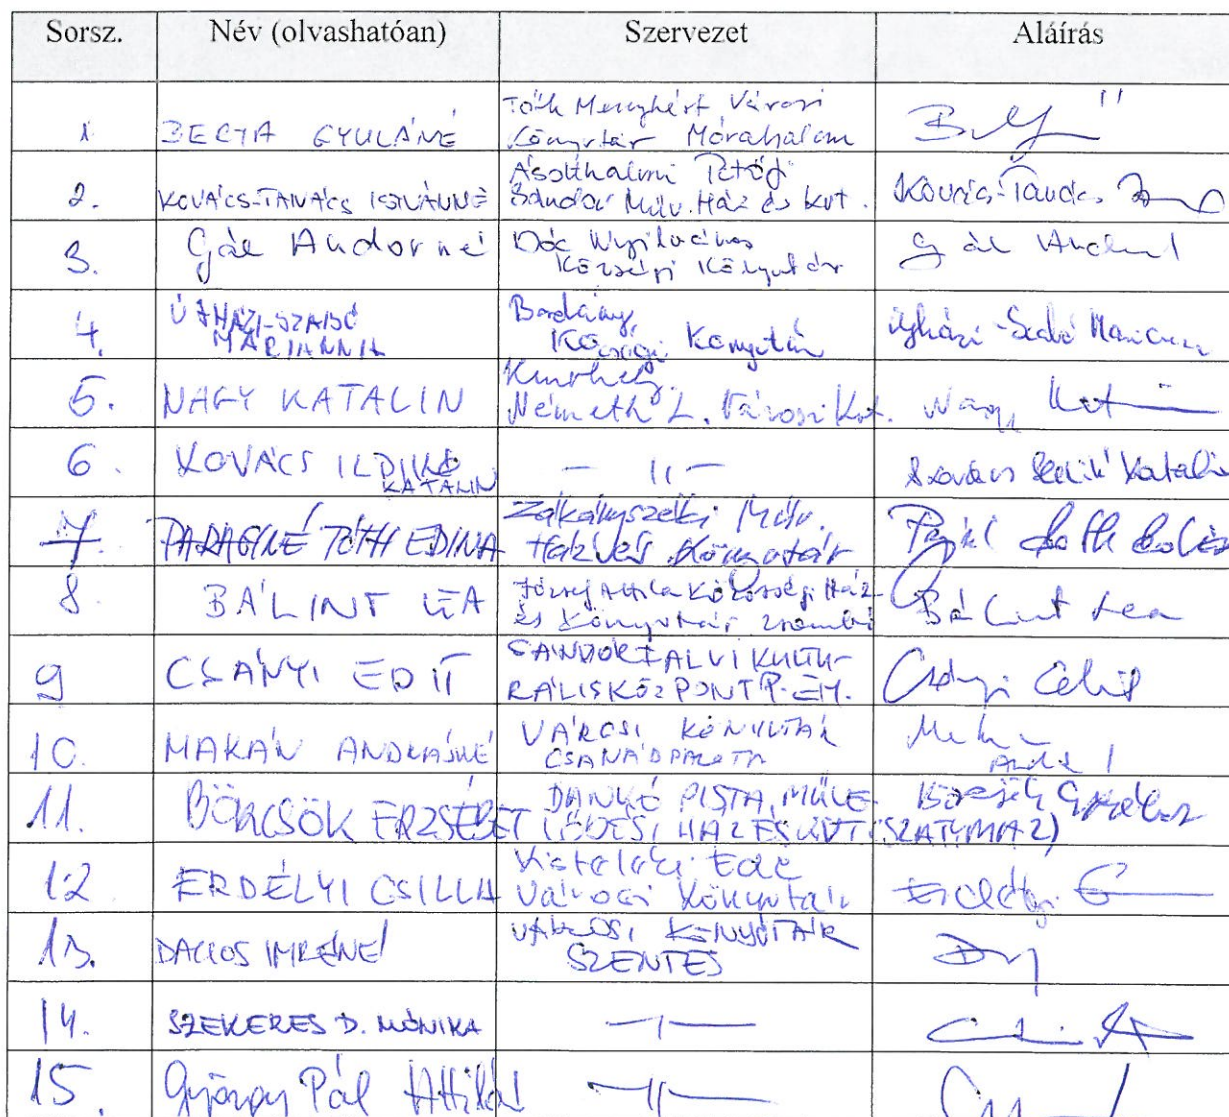 Sorsz. Név (olvashatóan) Szervezet Aláírás
1 BECTA GYULÁNÉ Tóth Menyhért Városi
Könyvtár Mórahalom
2. KOVÁCS-TANÁCS ISTVÁNNÉ Ásotthalmi Petőfi
Sándor Műv. Ház és Kvt. Kovács-Tanács
3. Gál Andorné Dóc Nyilvános
Községi Könyvtár Gál
4. ÚJHÁZI-SZABÓ
MARIANNA Bordány,
Községi Könyvtár Újházi-Szabó Marianna
5. NAGY KATALIN
Németh L. Városi Kvt. Nagy Kat
6. KOVÁCS ILDIKÓ
KATALIN — 11 — Kovács Ildikó Katalin
7. PARAGINÉ TÓTH EDINA Zákányszéki Műv.
Ház és Könyvtár
8. BÁLINT LEA József Attila Közösségi Ház
és Könyvtár Zsombó Bálint Lea
9 CSÁNYI EDIT SÁNDORFALVI KULTU-
RÁLIS KÖZPONT P. ÉM. Csányi Edit
10. MAKÁN ANDRÁSNÉ VÁROSI KÖNYVTÁR
CSANÁDPALOTA
11. BÖRCSÖK ERZSÉBET DANKÓ PISTA MŰVE-
LŐDÉSI HÁZ ÉS KVT (SZATYMAZ)
12 ERDÉLYI CSILLA Kisteleki Ede
Városi Könyvtár Erdélyi
13. DACZOS IMRÉNÉ VÁROSI KÖNYVTÁR
SZENTES
14. SZEKERES D. MÓNIKA —1—
15. György Pál Attila —11—